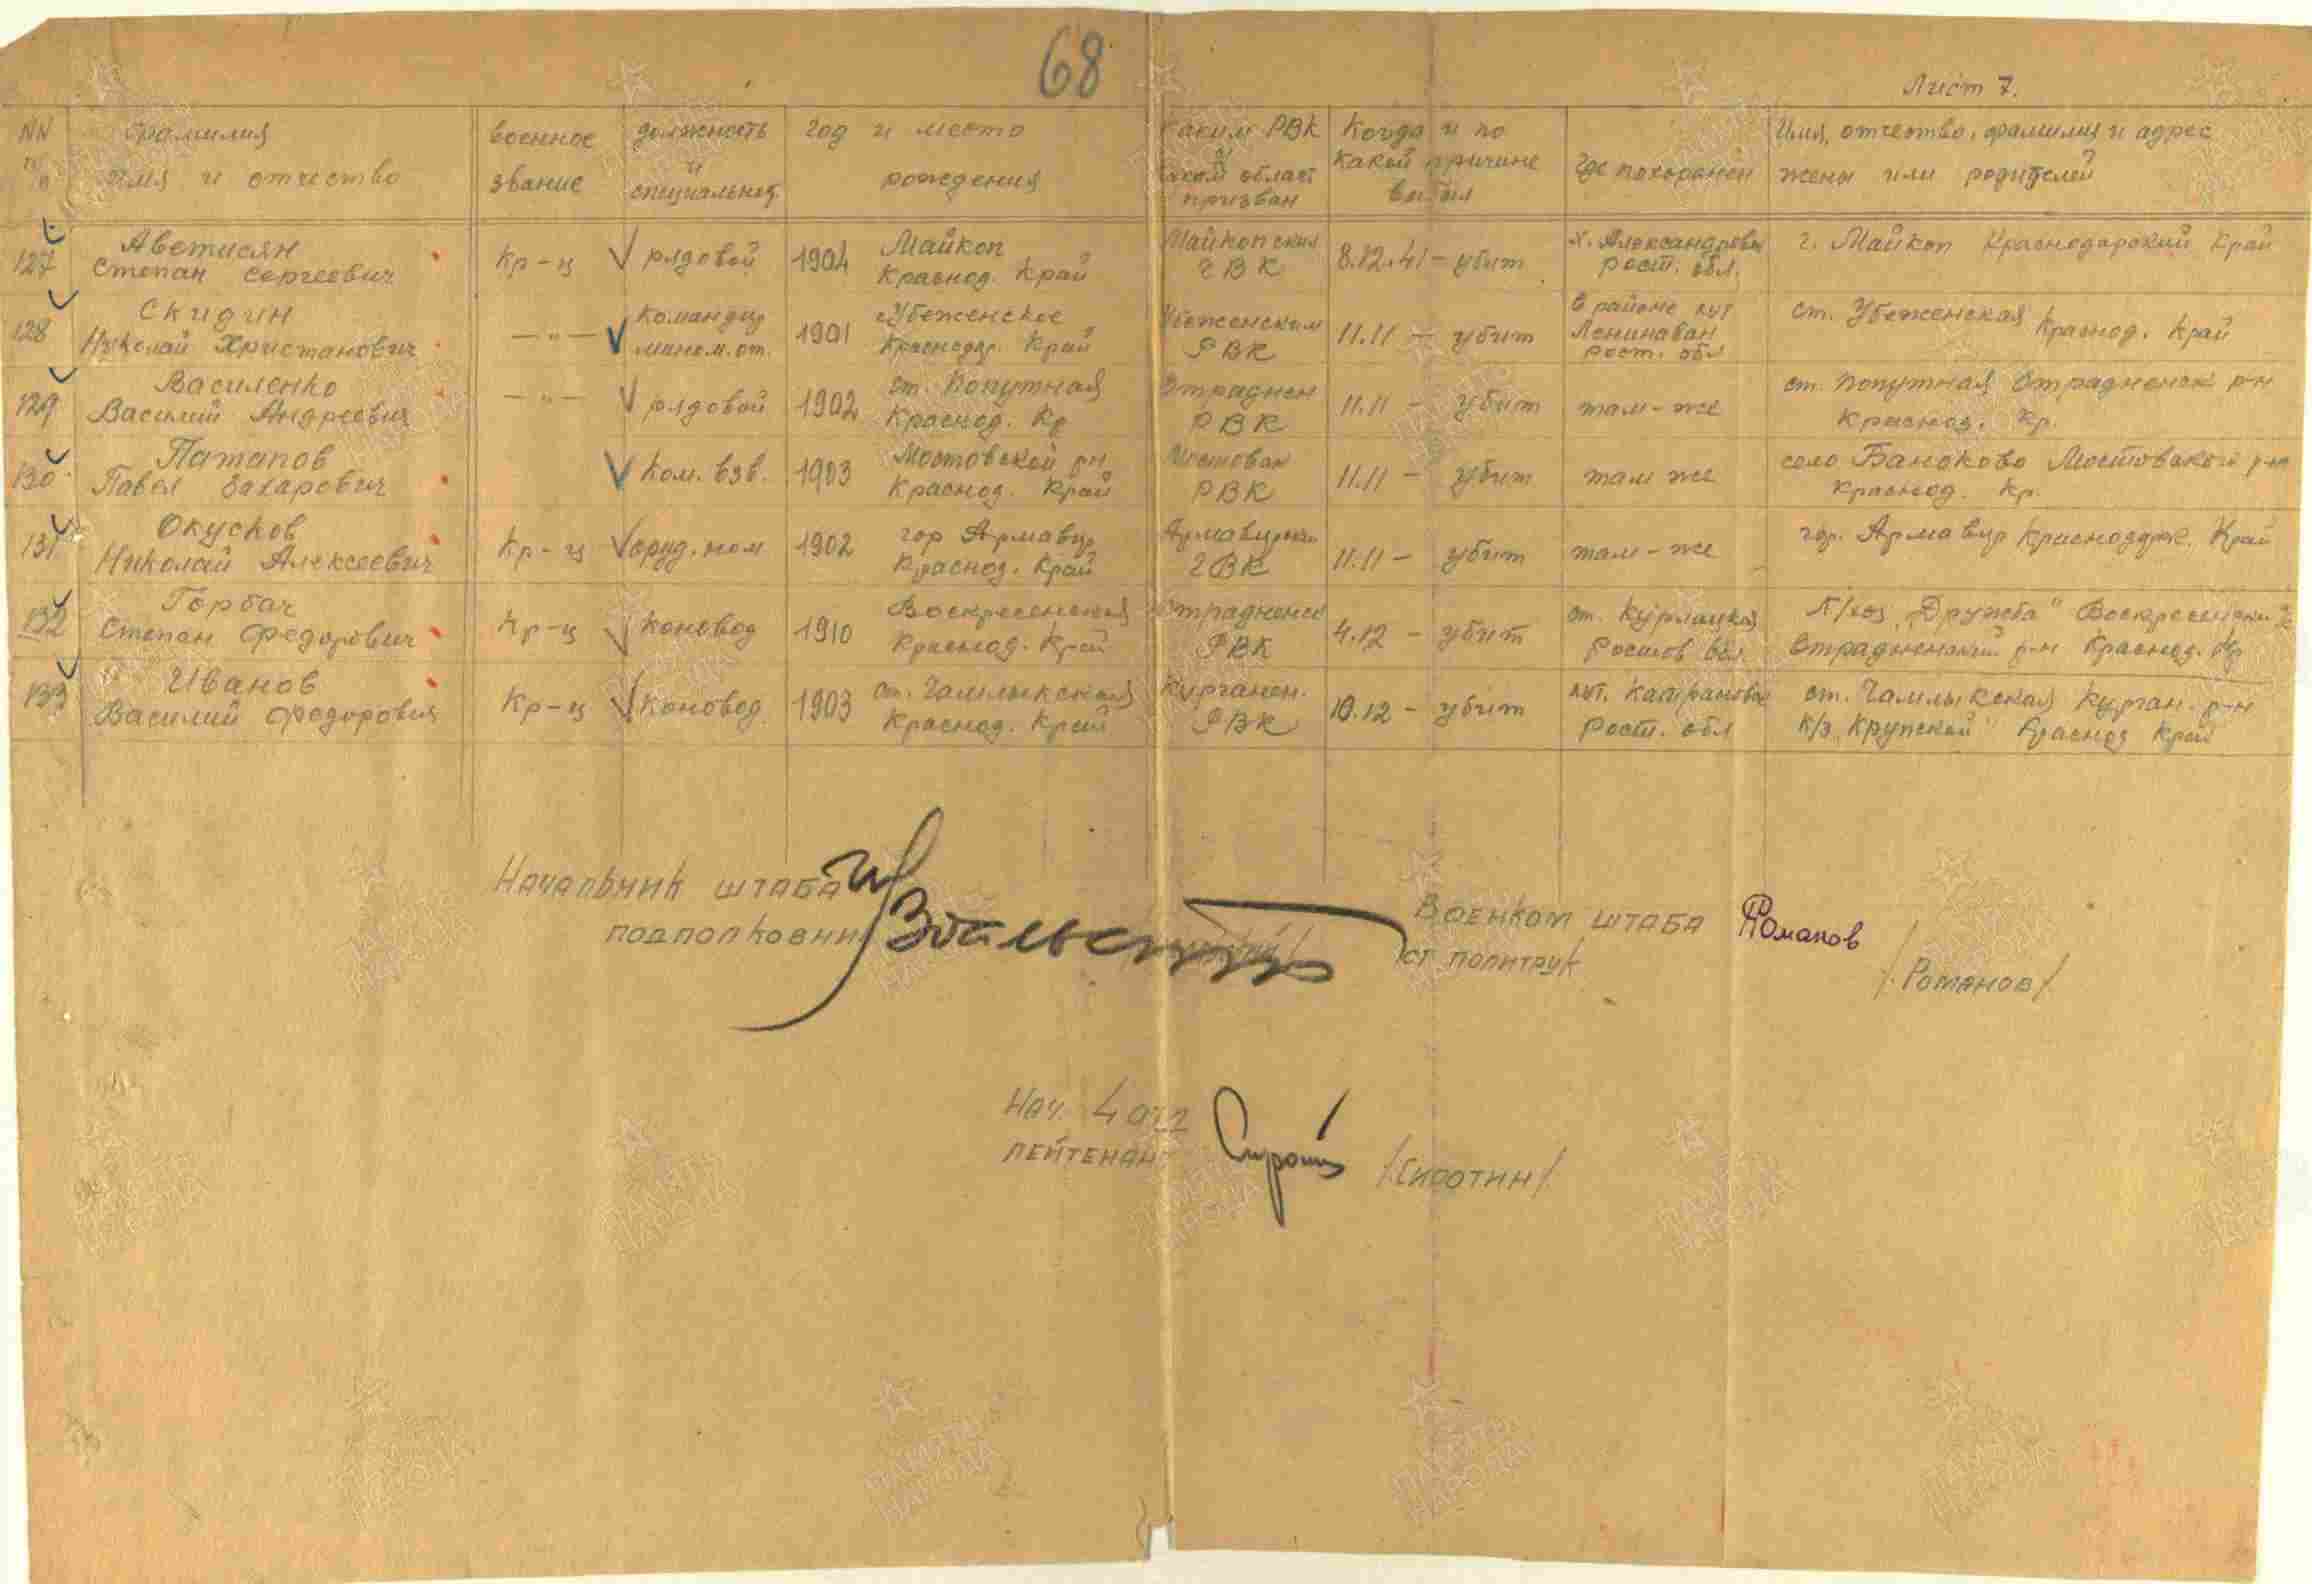 68
Лист 7.
NN п/п
Фамилия
Имя и отчество
Военное
звание
должность
и
специальност.
Год и место
рождения
Каким РВК
и
какой област
призван
Когда и по
какой причине
выбыл
Где похоронен
Имя, отчество, фамилия и адрес
жены или родителей
127
Аветисян
Степан Сергеевич
Кр-ц
рядовой
1904
Майкоп
Краснод. Край
Майкопским
ГВК
8.12.41 - убит
х. Александровка
Рост. обл.
г. Майкоп Краснодарский Край
128
Скидин
Николай Христанович
—"—
Командир
маном. от.
1901
Убеженское
Краснодар. Край
Убеженским
РВК
11.11 - убит
В районе хут
Ленинаван
Рост. обл
ст. Убеженская Краснод. Край
129
Василенко
Василий Андреевич
—"—
рядовой
1902
ст. Попутная
Краснод. Кр
Отраднен
РВК
11.11 - убит
там-же
ст. Попутная Отрадненск р-н
Краснод. Кр.
130
Патапов
Павел Захарович
Ком. взв.
1903
Мостовской рн
Краснод. Край
Мостовск
РВК
11.11 - убит
там же
село Мостовской р-на
Краснод. Кр.
131
Окусков
Николай Алексеевич
Кр-ц
оруд. ном
1902
гор Армавир
Краснод. Край
Армавирски
ГВК
11.11 - убит
там-же
гор. Армавир Краснодарск. Край
132
Горбач
Степан Федорович
Кр-ц
Коновод
1910
Воскресенская
Краснод. Край
Отрадненск
РВК
4.12 - убит
ст. Курлацкая
Ростов обл.
К/хоз "Дружба" Воскресенский
Отрадненский р-н Краснод. Кр
133
Иванов
Василий Федорович
Кр-ц
Коновод
1903
ст. Чамлыкская
Краснод. Край
Курганен.
РВК
10.12 - убит
хут. Катрановка
Рост. обл
ст. Чамлыкская Курган. р-н
К/з "Крупской" Краснод Край
Начальник штаба
подполковник
Военком штаба Романов
ст политрук
/Романов/
Нач. 4 отд
лейтенант
/Сиротин/
ПАМЯТЬ
НАРОДА